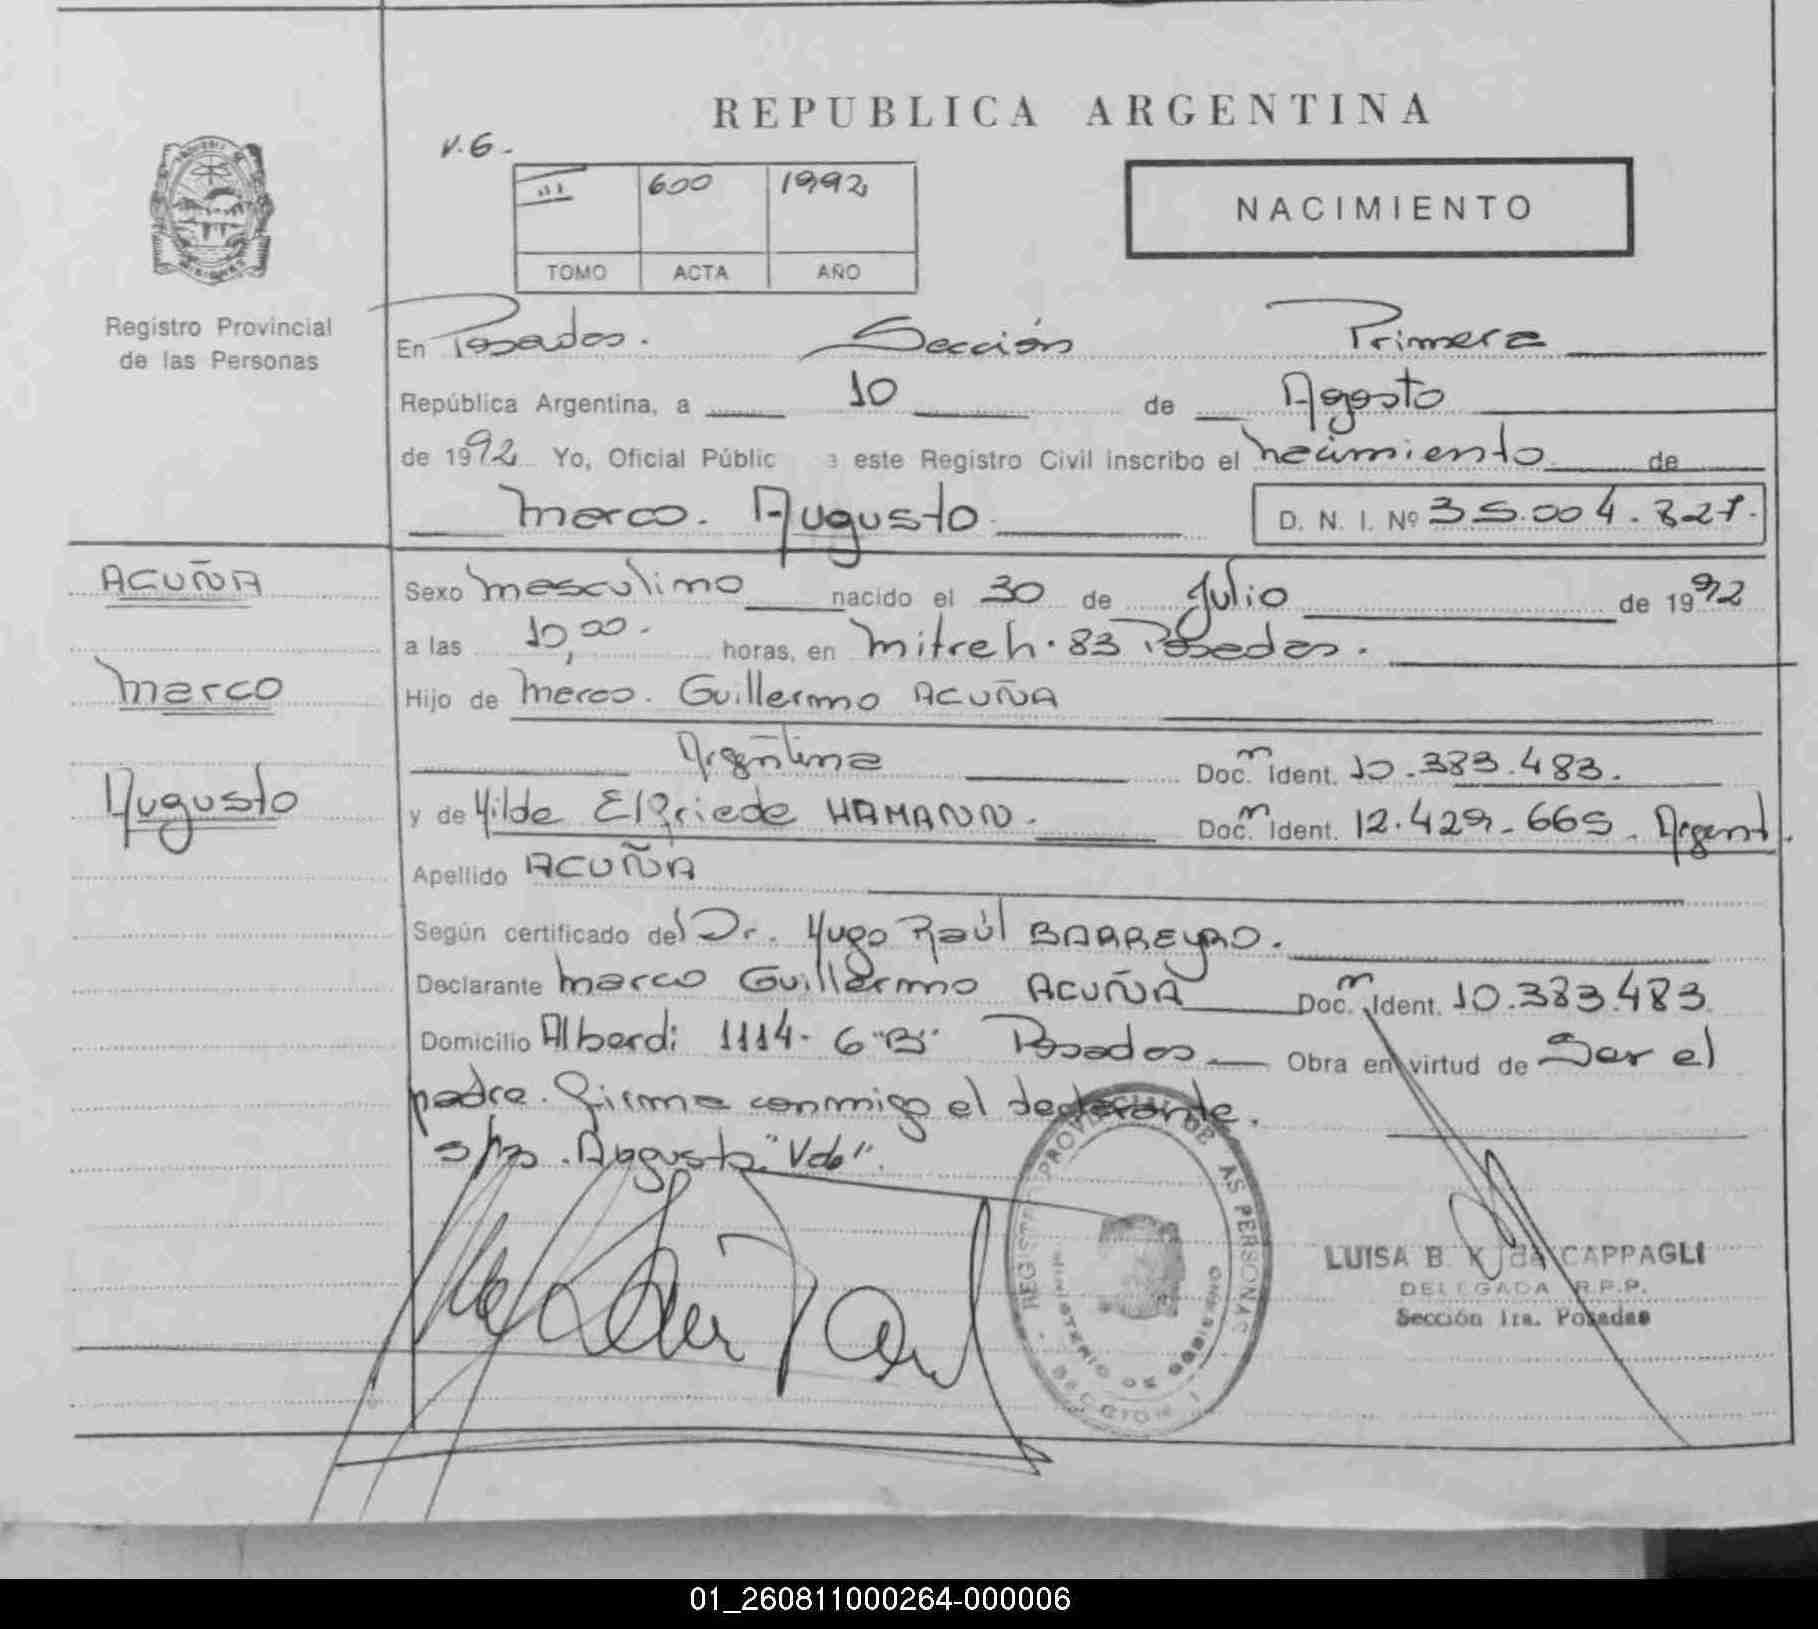 REPUBLICA ARGENTINA
V.G.
III 600 1992
TOMO ACTA AÑO
NACIMIENTO
Registro Provincial
de las Personas
En Posadas. Sección Primera
República Argentina, a 10 de Agosto
de 1992 Yo, Oficial Públic este Registro Civil inscribo el nacimiento de
Marco. Augusto D. N. I. Nº 35.004.827.
ACUÑA
Marco
Augusto
Sexo masculino nacido el 30 de Julio de 1992
a las 10,00. horas, en Mitre h. 83 Posadas.
Hijo de Marco. Guillermo ACUÑA
Argentina Doc. Ident. 10.383.483.
y de Hilde Elfriede HAMANN. Doc. Ident. 12.429.665. Argent.
Apellido ACUÑA
Según certificado del Dr. Hugo Raúl BARREYRO.
Declarante Marco Guillermo ACUÑA Doc. Ident. 10.383.483
Domicilio Alberdi 1114- 6 "B" Posadas Obra en virtud de Ser el
padre. Firma conmigo el declarante.
s/r. Augusto. "Vale".
REGISTRO PROVINCIAL DE LAS PERSONAS
MINISTERIO DE GOBIERNO
SECCION 1
LUISA B. K. de CAPPAGLI
DELEGADA R.P.P.
Sección 1ra. Posadas
01_260811000264-000006